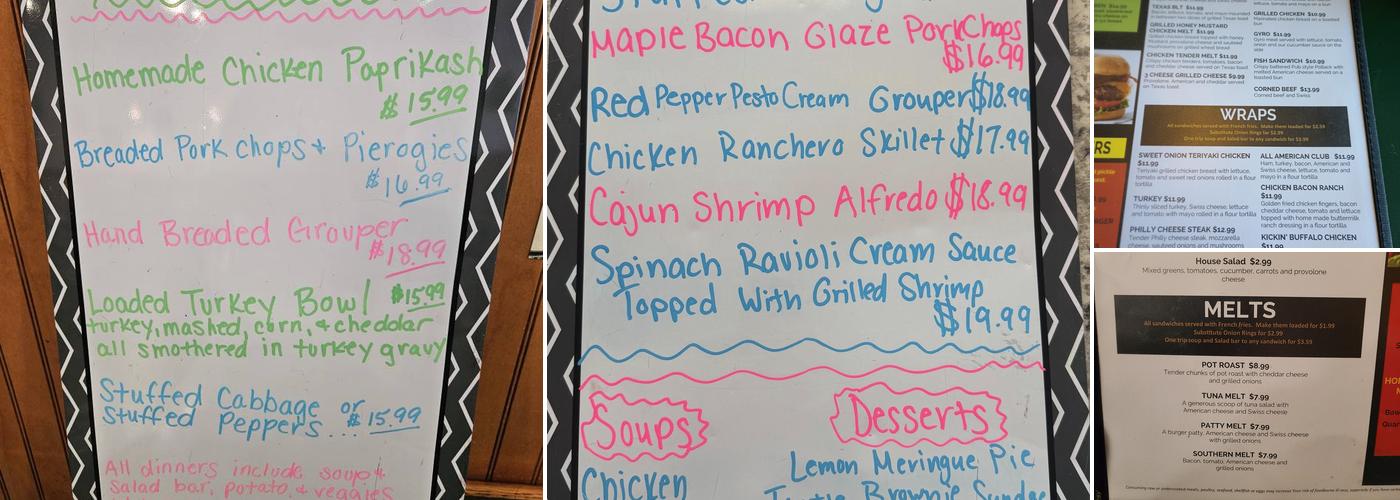 Homemade Chicken Paprikash
$15.99
Breaded Pork chops + Pierogies
$16.99
Hand Breaded Grouper
$18.99
Loaded Turkey Bowl $15.99
turkey, mashed, corn, + cheddar
all smothered in turkey gravy
Stuffed Cabbage or
Stuffed Peppers... $15.99
All dinners include soup +
salad bar, potato, + veggies
Maple Bacon Glaze PorkChops
$16.99
Red Pepper Pesto Cream Grouper $18.99
Chicken Ranchero Skillet $17.99
Cajun Shrimp Alfredo $18.99
Spinach Ravioli Cream Sauce
Topped With Grilled Shrimp
$19.99
Soups
Desserts
Chicken
Lemon Meringue Pie
Brownie Sundae
TEXAS BLT $11.99
GRILLED HONEY MUSTARD
CHICKEN MELT $11.99
Grilled chicken breast topped with honey
CHICKEN TENDER MELT $11.99
Crispy chicken tenders, tomatoes, bacon
and cheddar cheese served on Texas toast
3 CHEESE GRILLED CHEESE $9.99
Provolone, American and cheddar served
on Texas toast
GRILLED CHICKEN $10.99
Marinated chicken breast on a toasted
bun
GYRO $11.99
Gyro meat served with lettuce, tomato,
onion and our cucumber sauce on the
side
FISH SANDWICH $10.99
Crispy battered Pub style Pollack with
melted American cheese served on a
toasted bun
CORNED BEEF $13.99
Corned beef and Swiss
WRAPS
All sandwiches served with French fries. Make them loaded for $2.59
Substitute Onion Rings for $2.99
One trip soup and Salad bar to any sandwich for $3.99
SWEET ONION TERIYAKI CHICKEN
$11.99
Teriyaki grilled chicken breast with lettuce,
tomato and sweet red onions rolled in a flour
tortilla
TURKEY $11.99
Thinly sliced turkey, Swiss cheese, lettuce
and tomato with mayo rolled in a flour tortilla
PHILLY CHEESE STEAK $12.99
Tender Philly cheese steak, mozzarella
cheese, sautéed onions and mushrooms
ALL AMERICAN CLUB $11.99
Ham, turkey, bacon, American and
Swiss cheese, lettuce, tomato and
mayo in a flour tortilla
CHICKEN BACON RANCH
$11.99
Golden fried chicken fingers, bacon
cheddar cheese, tomato and lettuce
topped with home made buttermilk
ranch dressing in a flour tortilla
KICKIN' BUFFALO CHICKEN
$11.99
House Salad $2.99
Mixed greens, tomatoes, cucumber, carrots and provolone
cheese
MELTS
All sandwiches served with French fries. Make them loaded for $1.99
Substitute Onion Rings for $2.99
One trip soup and Salad bar to any sandwich for $3.59
POT ROAST $8.99
Tender chunks of pot roast with cheddar cheese
and grilled onions
TUNA MELT $7.99
A generous scoop of tuna salad with
American cheese and Swiss cheese
PATTY MELT $7.99
A burger patty, American cheese and Swiss cheese
with grilled onions
SOUTHERN MELT $7.99
Bacon, tomato, American cheese and
grilled onions